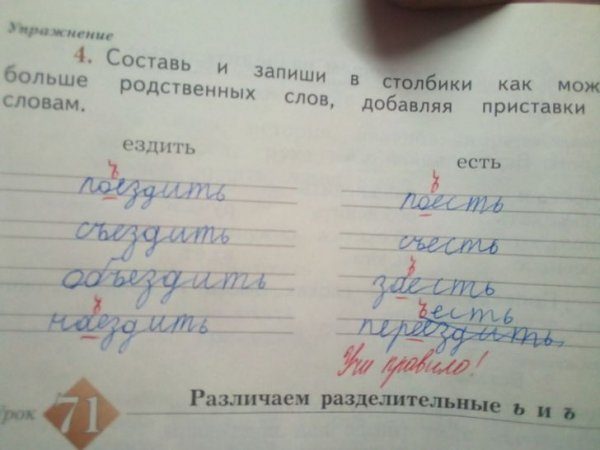 Упражнение
4. Составь и запиши в столбики как мож
больше родственных слов, добавляя приставки
словам.
ездить
есть
ъ
поездить
съездить
объездить
ъ
наездить
ъ
поесть
съесть
ъ
заесть
ъесть
переездить
Учи правило!
урок 71
Различаем разделительные ь и ъ